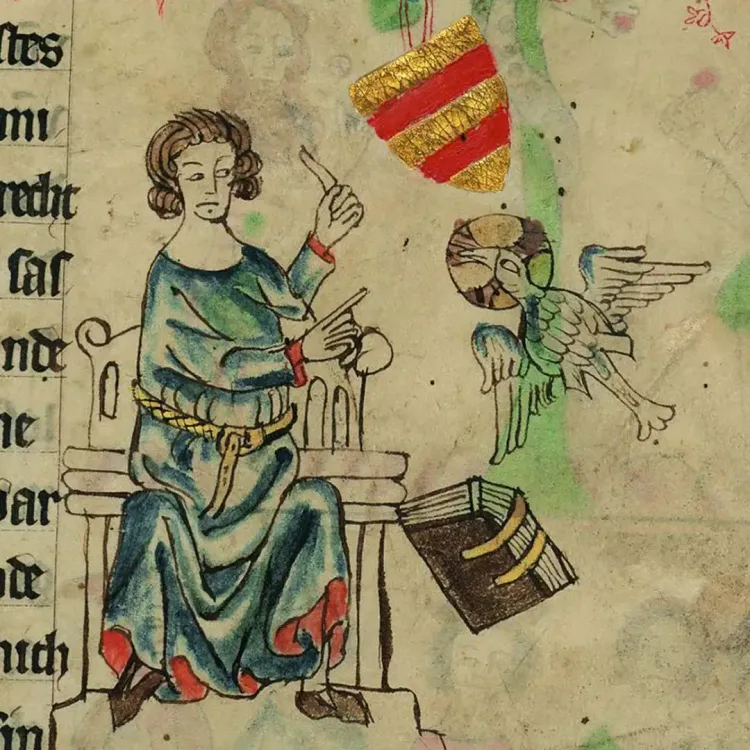 ſtes
recht
ſaſ
nde
ne
ar
de
nich
ſin